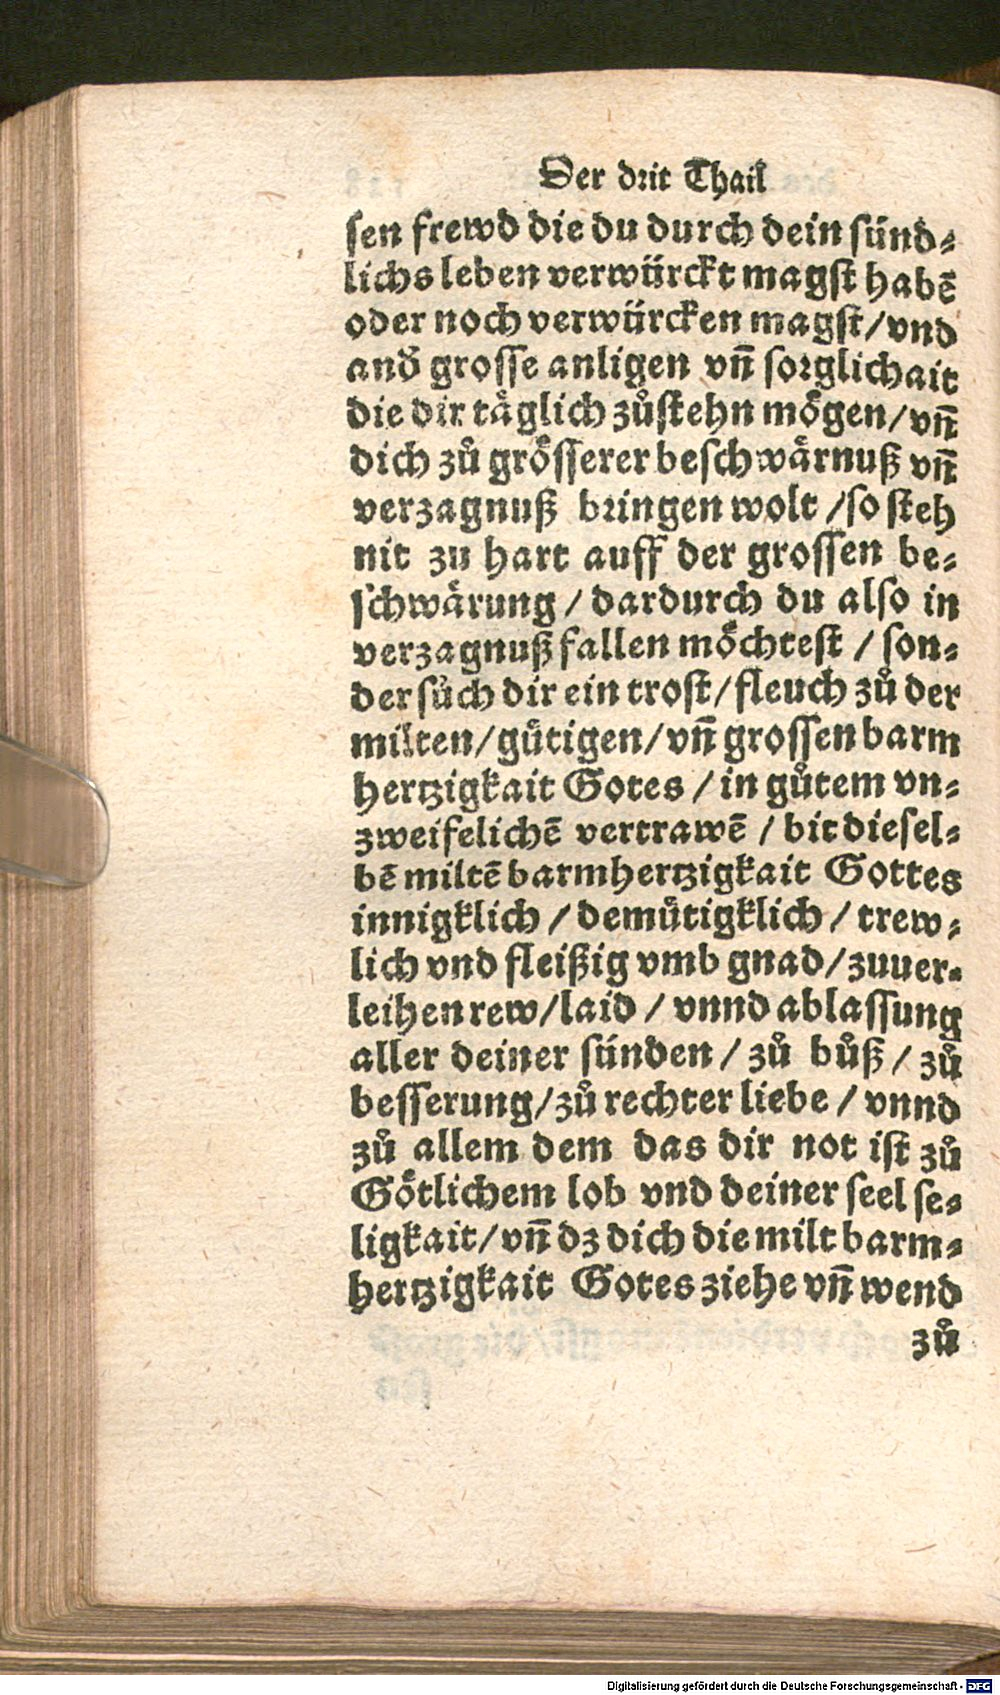 Der drit Thail
sen frewd die du durch dein sünd⸗
lichs leben verwürckt magst habē
oder noch verwürcken magst/vnd
and̕ grosse anligen vn̄ sorglichait
die dir täglich zůstehn mögen/vn̄
dich zů grösserer beschwärnuß vn̄
verzagnuß bringen wolt /so steh
nit zu hart auff der grossen be⸗
schwärung / dardurch du also in
verzagnuß fallen möchtest / son⸗
der sůch dir ein trost/fleuch zů der
milten/gütigen/vn̄ grossen barm
hertzigkait Gotes / in gůtem vn⸗
zweifelichē vertrawē / bit diesel⸗
bē miltē barmhertzigkait Gottes
innigklich / demütigklich / trew⸗
lich vnd fleißig vmb gnad/zuuer⸗
leihen rew/laid / vnnd ablassung
aller deiner sünden / zů bůß / zů
besserung/zů rechter liebe / vnnd
zů allem dem das dir not ist zů
Götlichem lob vnd deiner seel se⸗
ligkait/vn̄ dz dich die milt barm⸗
hertzigkait Gotes ziehe vn̄ wend
zů
Digitalisierung gefördert durch die Deutsche Forschungsgemeinschaft - DFG